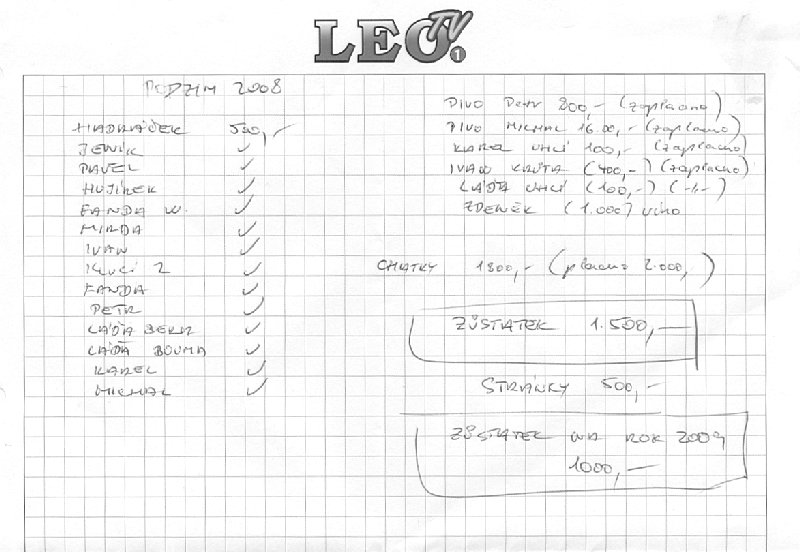 LEO TV 1
PODZIM 2008
HADRÁČEK 500,-
JENÍK ✓
PAVEL ✓
HUJÍREK ✓
FANDA W. ✓
MIRDA ✓
IVAN ✓
KLUCI 2 ✓
FANDA ✓
PETR ✓
LÁĎA BERN ✓
LÁĎA BOUMA ✓
KAREL ✓
MICHAL ✓
PIVO Petr 800,- (zaplaceno)
PIVO MICHAL 1600,- (zaplaceno)
KAREL UHLÍ 100,- (zaplaceno)
IVAN KRŮTA (400,-) (zaplaceno)
LÁĎA UHLÍ (100,-) (-11-)
ZDENĚK (1.000) víno
CHATKY 1800,- (placeno 2.000,)
ZŮSTATEK 1.500,-
STRÁNKY 500,-
ZŮSTATEK NA ROK 2009
1000,-